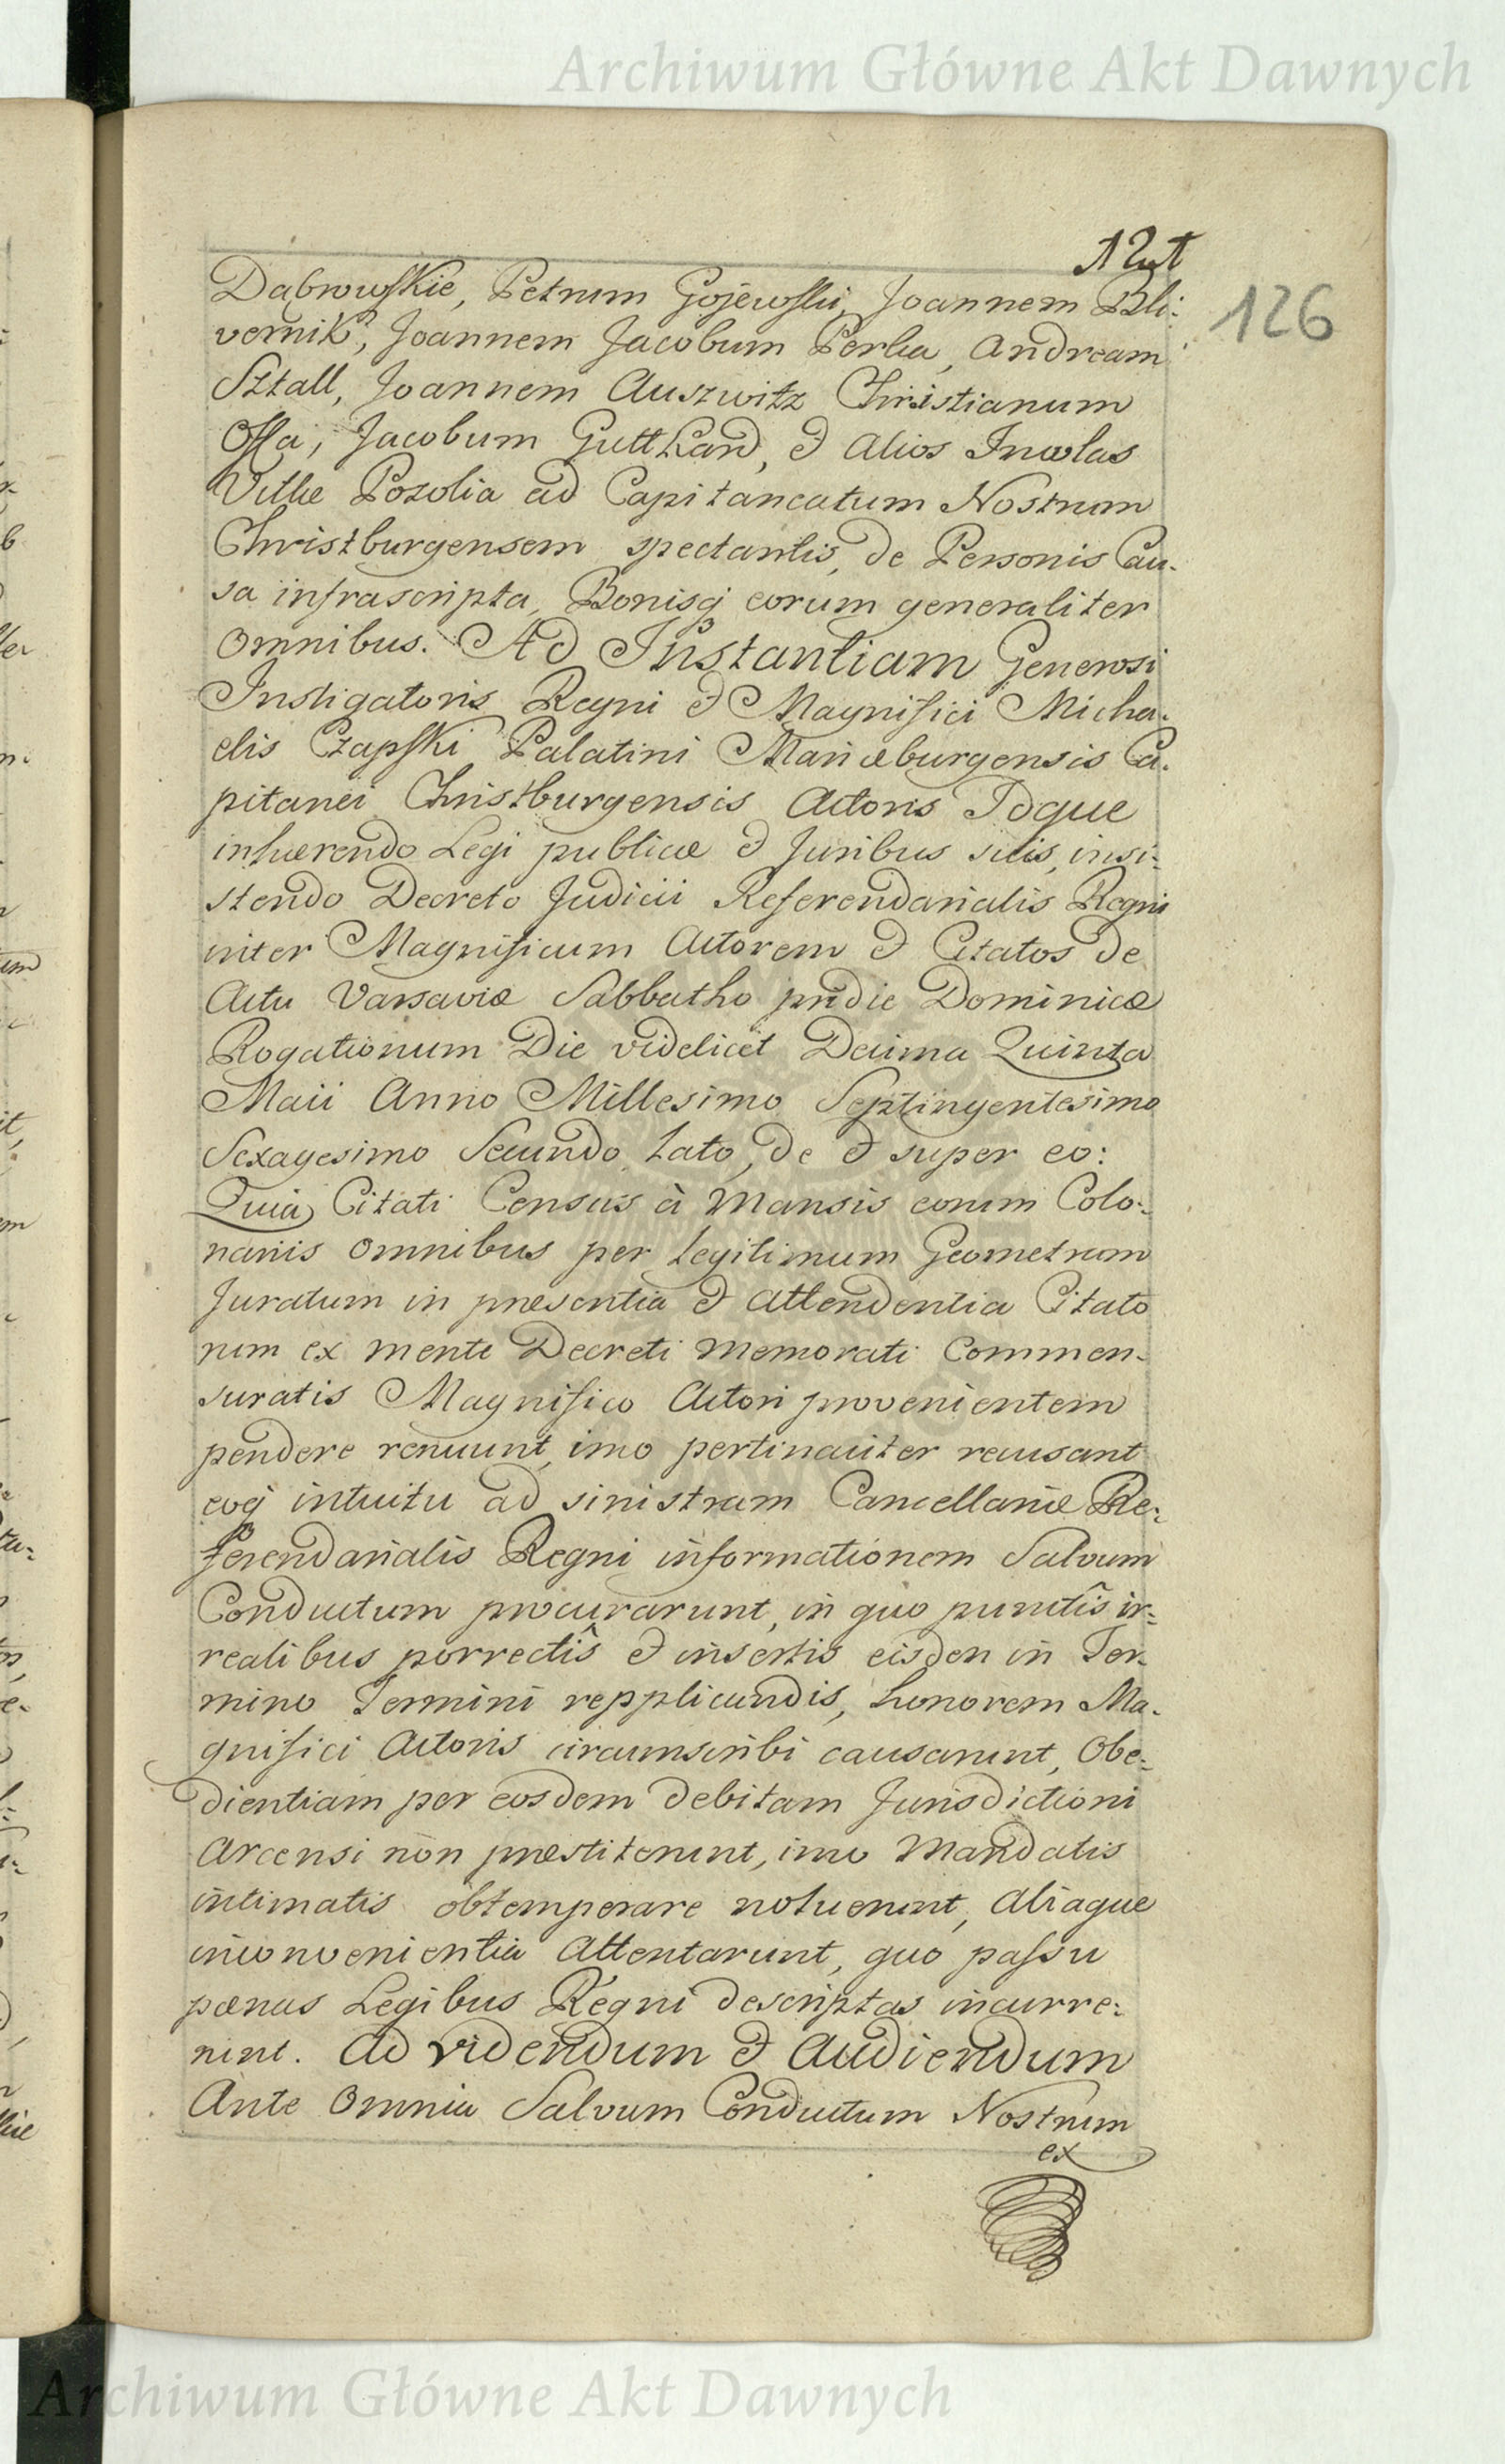 Archiwum Główne Akt Dawnych
126
Dąbrowskie, Petrum Gojewski, Joannem Bli:
vernik, Joannem Jacobum Perla, Andream
Sztall, Joannem Auszwitz Christianum
Ossa, Jacobum Gutthard, & Alios Incolas
Villæ Pozolia ad Capitaneatum Nostrum
Christburgensem spectantis, de Personis Cau-
sa infrascripta, Bonisq eorum generaliter
omnibus. Ad Instantiam Generosi
Instigatoris Regni & Magnifici Micha-
elis Czapski Palatini Mariæburgensis Ca-
pitanei Christburgensis Actoris Idque
inhærendo Legi publicæ & Juribus suis, insi-
stendo Decreto Judicii Referendarialis Regni
inter Magnificum Actorem & Citatos de
Actu Varsaviæ Sabbatho pridie Dominicæ
Rogationum Die videlicet Decima Quinta
Maii Anno Millesimo Septingentesimo
Sexagesimo Secundo Lato, de & super eo:
Quia Citati Census à Mansis eorum Colo-
nariis omnibus per Legitimum Geometram
Juratum in præsentia & Attendentia Citato
rum ex mente Decreti memorati Commen-
suratis Magnifico Actori provenientem
pendere renuunt, imo pertinaciter recusant
eoq intuitu ad sinistram Cancellariæ Re-
ferendarialis Regni informationem Salvum
Conductum procurarunt, in quo punctîs ir-
realibus porrectîs & insertis eisdem in Ter-
mino Termini repplicundis, honorem Ma-
gnifici Actoris circumscribi causarunt, Obe-
dientiam per eosdem debitam Jurisdictioni
Arcensi non præstiterunt, imo Mandatis
intimatis obtemperare noluerunt, Aliaque
inconvenientia Attentarunt, quo passu
pœnas Legibus Regni descriptas incurre:
runt. Ad videndum & Audiendum
Ante omnia Salvum Conductum Nostrum
ex
Archiwum Główne Akt Dawnych